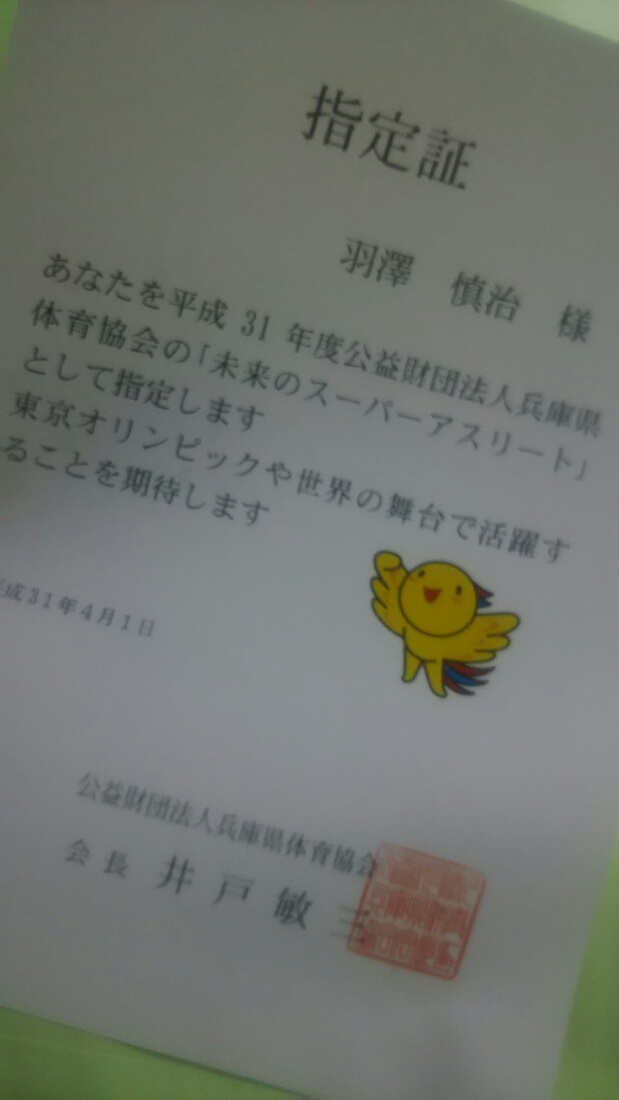 指定証
羽澤 慎治 様
あなたを平成 31 年度公益財団法人兵庫県
体育協会の「未来のスーパーアスリート」
として指定します
東京オリンピックや世界の舞台で活躍す
ることを期待します
平成31年4月1日
公益財団法人兵庫県体育協会
会長 井戸敏三